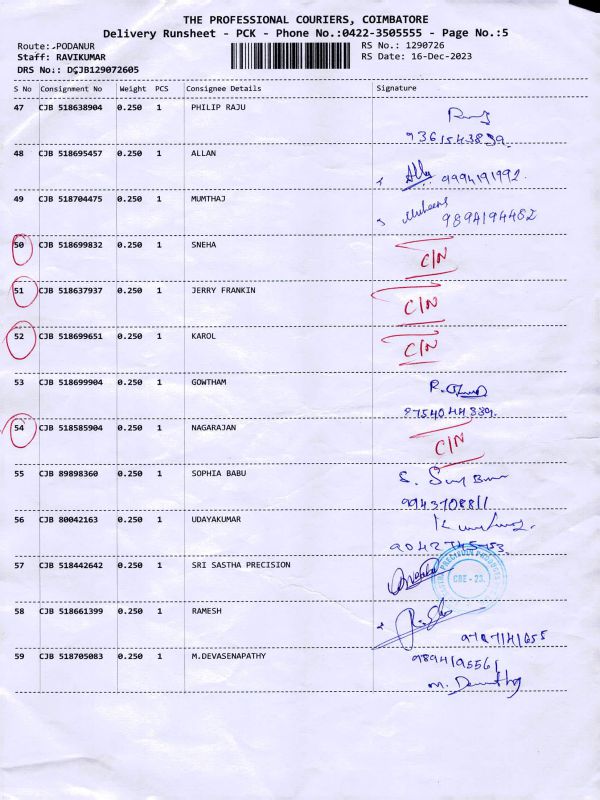 THE PROFESSIONAL COURIERS, COIMBATORE
Delivery Runsheet - PCK - Phone No.:0422-3505555 - Page No.:5
Route: PODANUR RS No.: 1290726
Staff: RAVIKUMAR RS Date: 16-Dec-2023
DRS No.: DCJB129072605
S No Consignment No Weight PCS Consignee Details Signature
47 CJB 518638904 0.250 1 PHILIP RAJU
9361543839
48 CJB 518695457 0.250 1 ALLAN
9994191992
49 CJB 518704475 0.250 1 MUMTHAJ
9894194482
50 CJB 518699832 0.250 1 SNEHA C/N
51 CJB 518637937 0.250 1 JERRY FRANKIN C/N
52 CJB 518699651 0.250 1 KAROL C/N
53 CJB 518699904 0.250 1 GOWTHAM
54 CJB 518585904 0.250 1 NAGARAJAN C/N
55 CJB 89898360 0.250 1 SOPHIA BABU
9943708811
56 CJB 80042163 0.250 1 UDAYAKUMAR
57 CJB 518442642 0.250 1 SRI SASTHA PRECISION
CBE - 23.
58 CJB 518661399 0.250 1 RAMESH
59 CJB 518705083 0.250 1 M.DEVASENAPATHY
9894195561